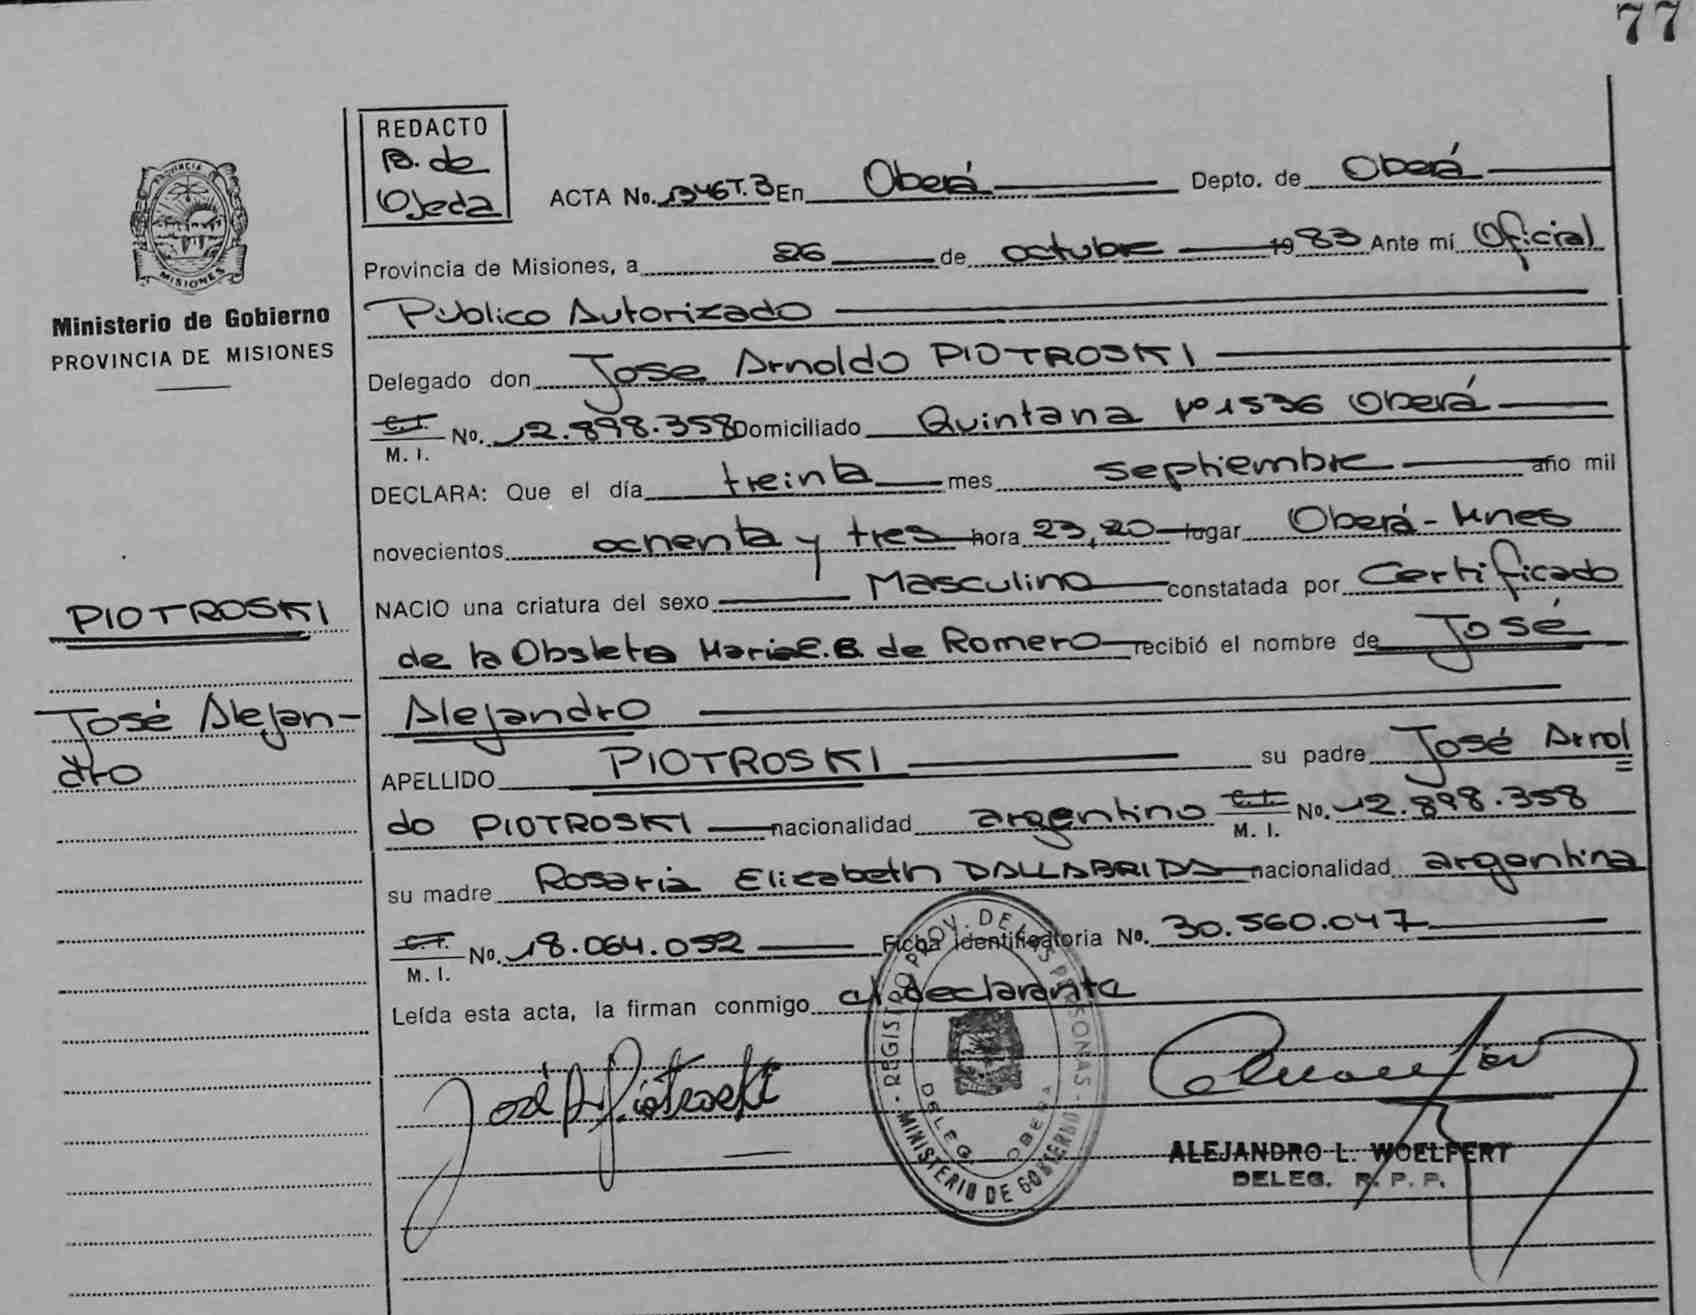 77
REDACTO
B. de
Ojeda
ACTA No. 1346T.3 En Oberá Depto. de Oberá
Provincia de Misiones, a 26 de octubre 1983 Ante mí Oficial
Público Autorizado
Delegado don Jose Arnoldo PIOTROSKI
C.I. M. I. No. 12.898.358 Domiciliado Quintana Nº 1536 Oberá
DECLARA: Que el día treinta mes septiembre año mil
novecientos ochenta y tres hora 23,20 lugar Oberá - Mnes
NACIO una criatura del sexo Masculino constatada por Certificado
de la Obsteta Maria E.B. de Romero recibió el nombre de José
Alejandro
APELLIDO PIOTROSKI su padre José Arnol
do PIOTROSKI nacionalidad argentino C.I. M. I. No. 12.898.358
su madre Rosaria Elizabeth DALLABRIDA nacionalidad argentina
C.I. M. I. No. 18.064.052 Ficha identificatoria No. 30.560.047
Leída esta acta, la firman conmigo el declarante
José A. Piotroski
ALEJANDRO L. WOELFERT
DELEG. R. P. P.
REGISTRO PROV. DE LAS PERSONAS
DELEG. OBERA
MINISTERIO DE GOBIERNO
PROVINCIA
MISIONES
Ministerio de Gobierno
PROVINCIA DE MISIONES
PIOTROSKI
José Alejan-
dro